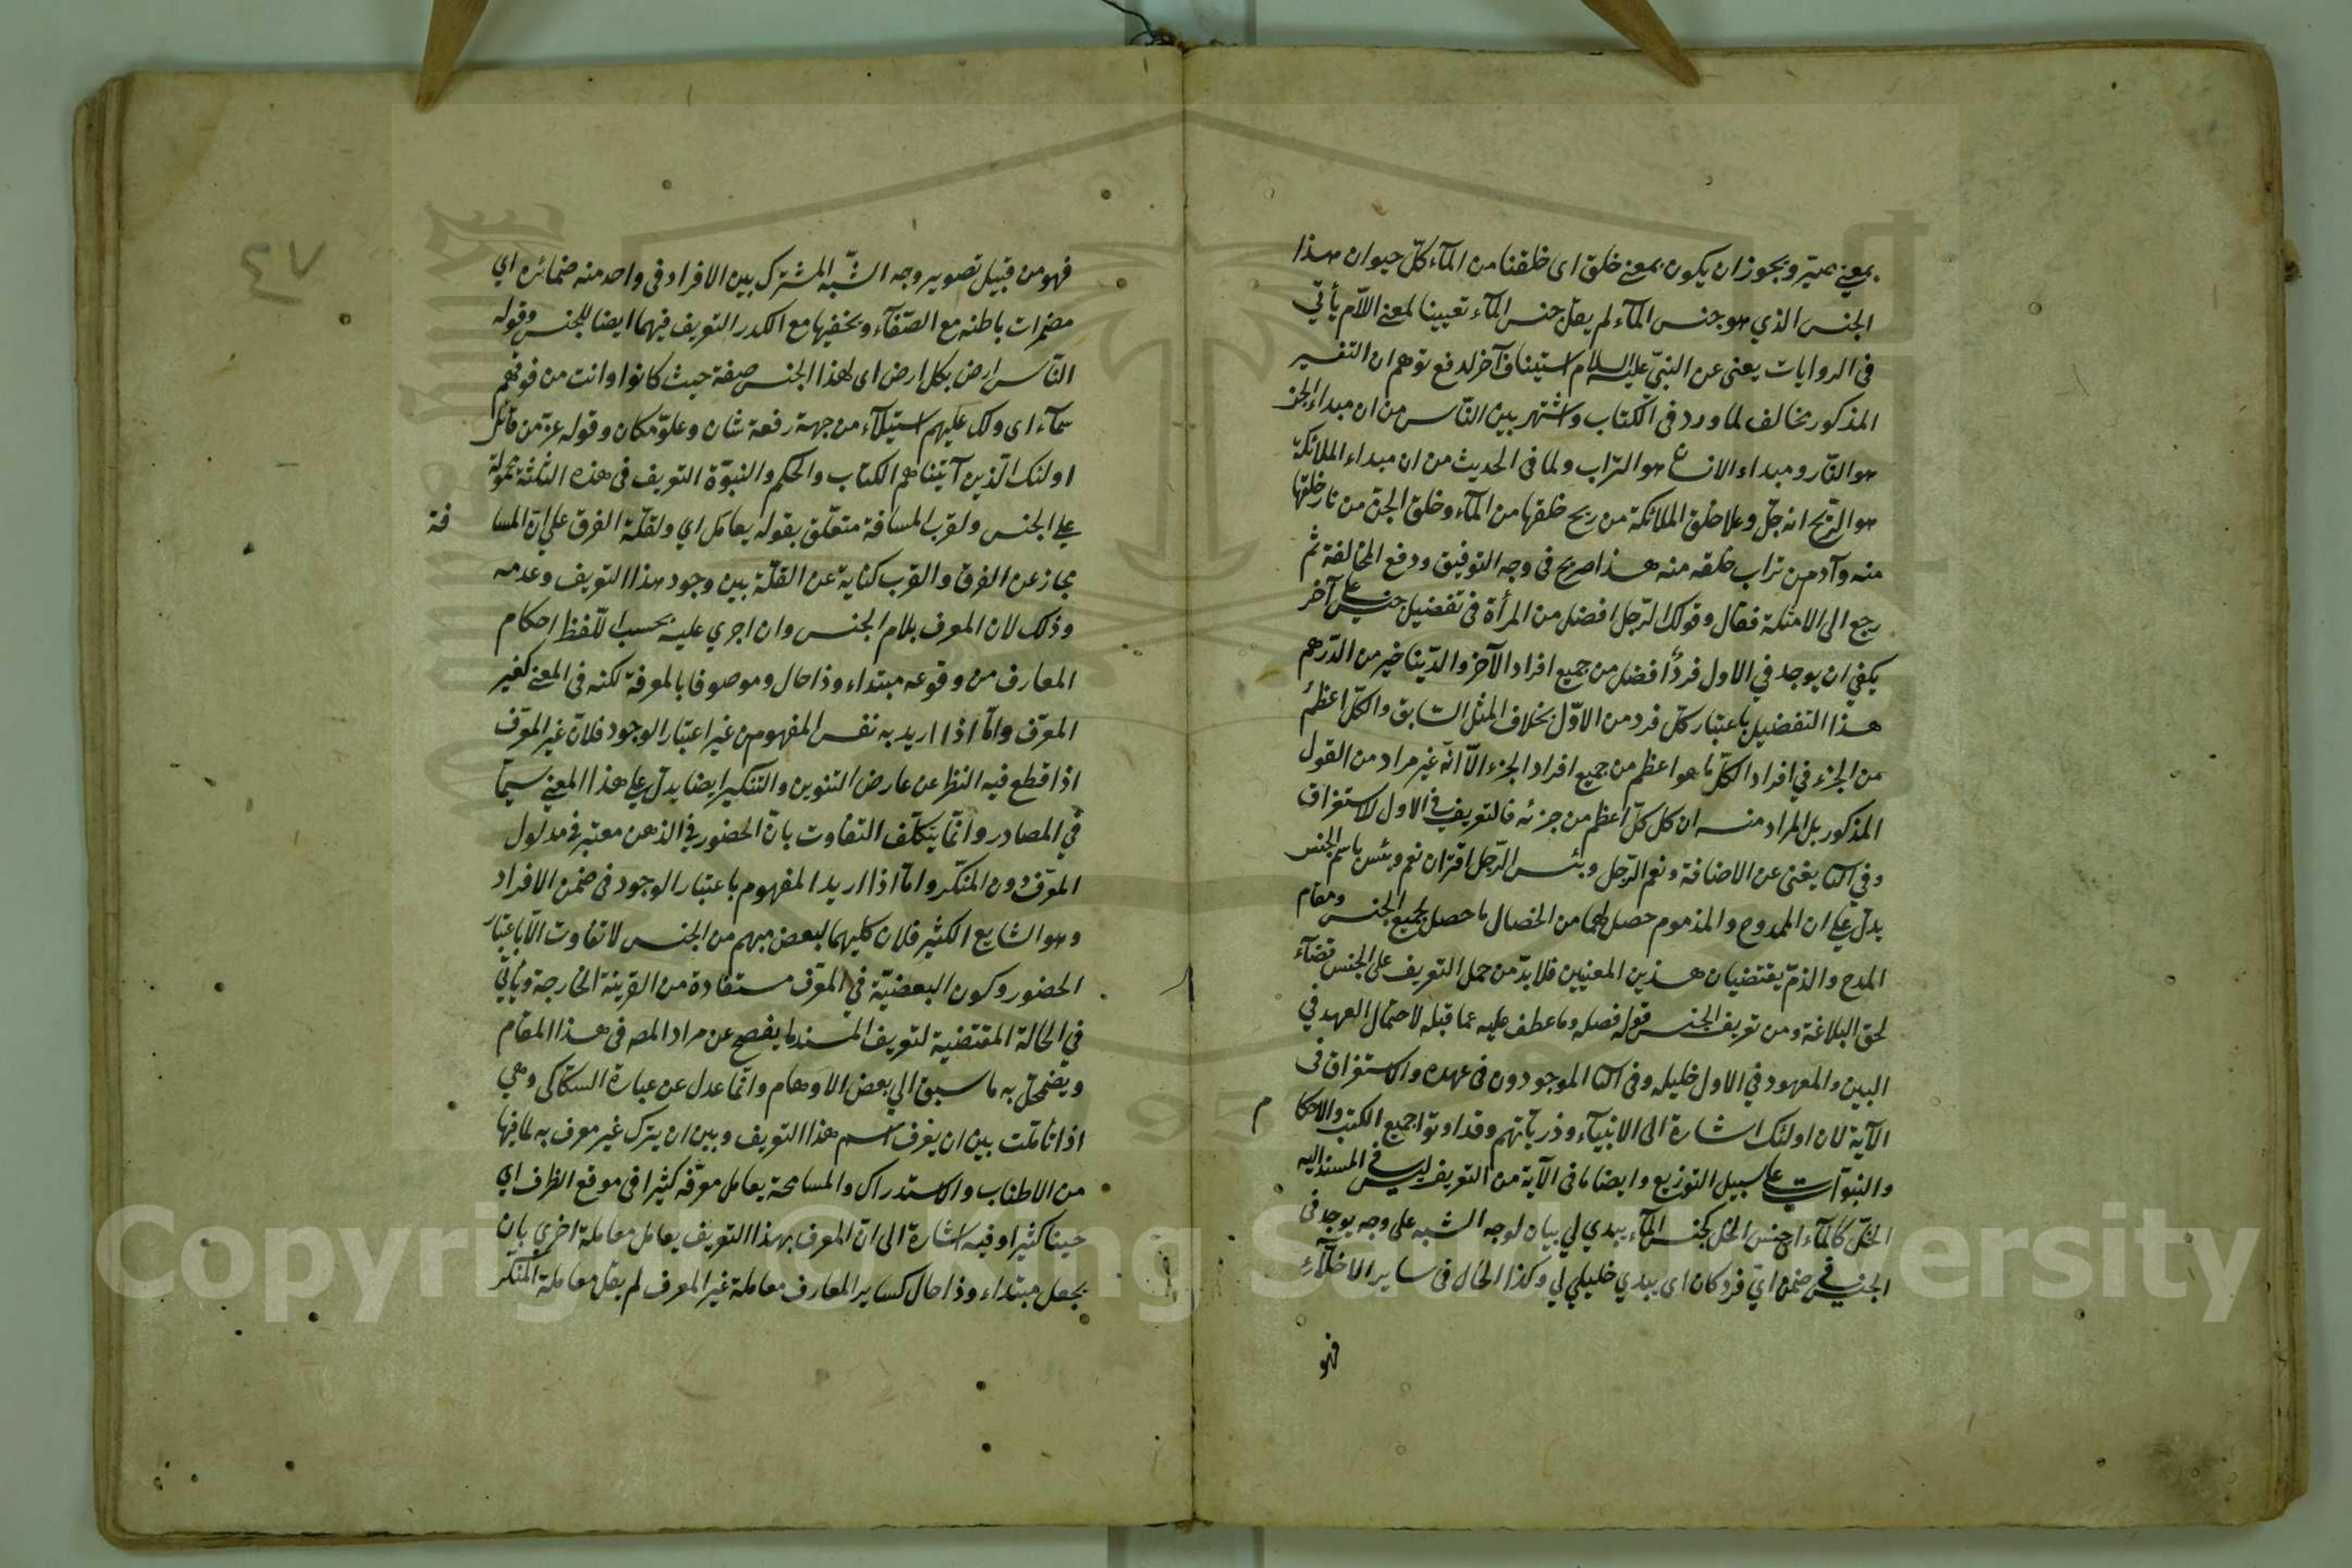 بمعنى صيّر ويجوز ان يكون بمعنى خلق اى خلقنا من المآء كلّ حيوان هذا
الجنس الذي هو جنس المآء لم يقل جنس المآء تعيينا لمعنى اللّام يأتي
فى الروايات يعنى عن النبىّ عليه السلام استيناف آخر لدفع توهم ان التفسير
المذكور مخالف لما ورد فى الكتاب واشتهر بين النّاس من ان مبداء الجنّ
هو النّار ومبداء الانسان هو التراب ولما فى الحديث من ان مبداء الملائكة
هو الرّيح انه جلّ وعلا خلق الملائكة من ريح خلقها من المآء وخلق الجنّ من نار خلقها
منه وآدم من تراب خلقه منه هذا صريح فى وجه التوفيق ودفع المخالفة ثم
رجع الى الامثلة فقال وقولك الرّجل افضل من المرأة فى تفضيل جنس على آخر
يكفي ان يوجد في الاول فردٌ افضل من جميع افراد الآخر والدّينا خير من الدّرهم
هذا التفضيل باعتبار كلّ فرد من الاوّل بخلاف المثل السّابق والكلّ اعظم
من الجزء في افراد الكلّ ما هو اعظم من جميع افراد الجزء الّا انّه غير مراد من القول
المذكور بل المراد منه ان كل كلّ اعظم من جزئه فالتعريف في الاول للاستغراق
وفي الثا يغنى عن الاضافة ونعم الرّجل وبئس الرّجل اقتران نعم وبئس باسم الجنس
يدلّ على ان الممدوح والمذموم حصل لهما من الخصال ما حصل لجميع الجنس ومقام
المدح والذمّ يقتضيان هذين المعنيين فلا بدّ من حمل التعريف على الجنس قضآء
لحق البلاغة ومن تعريف الجنس قوله فصله وما عطف عليه عما قبله لاحتمال العهد في
البين والمعهود في الاول خليله وفى الثا الموجودون فى عهده والاستغراق فى
الآية لان اولئك اشارة الى الانبيآء وذريّاتهم وقد اوتوا جميع الكتب والاحكام
والنبوّات على سبيل التوزيع وايضا ما فى الآية من التعريف ليس في المسند اليه
الخلّ كالمآء اى جنس الخل كجنس المآء يبدي لي بيان لوجه الشبه على وجه يوجد فى
الجنس في ضمن اىّ فرد كان اى يبدي خليلي لي وكذا الحال فى ساير الاخلّآء
فهو
٤٧
فهو من قبيل تصوير وجه الشّبه المشترك بين الافراد فى واحد منه ضمائره اي
مضمرات باطنه مع الصّفآء ويخفيها مع الكدر التعريف فيهما ايضا للجنس وقوله
النّاس ارض بكل ارض اى لهذا الجنس صفة حيث كانوا وانت من فوقهم
سمآء اى ولك عليهم استيلآء من جهة رفعة شان وعلوّ مكان وقوله عزّ من قائل
اولئك الّذين آتيناهم الكتاب والحكم والنبوّة التعريف فى هذه الثلثة محمولة
على الجنس ولقرب المسافة متعلّق بقوله يعامل اي ولقلّة الفرق على انّ المسافة
مجاز عن الفرق والقرب كناية عن القلّة بين وجود هذا التعريف وعدمه
وذلك لان المعرف بلام الجنس وان اجري عليه بحسب اللّفظ احكام
المعارف من وقوعه مبتداء وذا حال وموصوفا بالمعرفة لكنه فى المعنى كغير
المعرّف وامّا اذا اريد به نفس المفهوم من غير اعتبار الوجود فلانّ غير المعرّف
اذا قطع فيه النظر عن عارض التنوين والتنكير ايضا يدلّ على هذا المعنى سيّما
في المصادر وانّما يتكلّف التفاوت بانّ الحضور في الذهن معتبر في مدلول
المعرّف دون المنكّر وامّا اذا اريد المفهوم باعتبار الوجود فى ضمن الافراد
وهو الشايع الكثير فلان كليهما لبعض مبهم من الجنس لا تفاوت الّا باعتبار
الحضور وكون البعضيّة في المعرّف مستفادة من القرينة الخارجة ويأتي
في الحالة المقتضية لتعريف المسند ما يفصح عن مراد المصـ فى هذا المقام
ويضمحلّ به ما سبق الي بعض الاوهام وانّما عدل عن عبارة السكّاكى وهي
اذا تأملت بين ان يعرف اسم هذا التعريف وبين ان يترك غير معرف به لما فيها
من الاطناب والاستدراك والمسامحة يعامل معرّفه كثيرا فى موقع الظرف اي
حينا كثيرا وفيه اشارة الى انّ المعرف بهذا التعريف يعامل معاملة اخرى بان
يجعل مبتداء وذا حال كساير المعارف معاملة غير المعرف لم يقل معاملة المنكّر